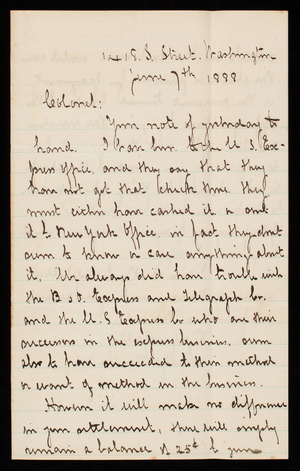 1418. S. Street. Washington
June 7th 1888
Colonel:
Your note of yesterday to
hand. I have been to the U. S. Ex-
press Office, and they say that they
have not got that check there, they
must either have cashed it or sent
it to New York Office, in fact they dont
seem to know or care anything about
it, We always did have trouble with
the B & O. Express and Telegraph Co.
and the U. S Express Co who are their
successors in the express business, seem
also to have succeeded to their method
or want of method in the business.
However it will make no difference
in your settlement, there will simply
remain a balance of 25¢ to your